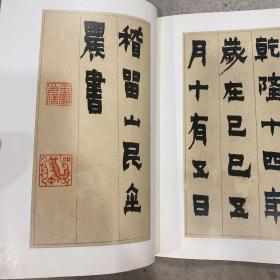 乾隆十四年
歲在己巳五
月十有五日
稽留山民金
農書